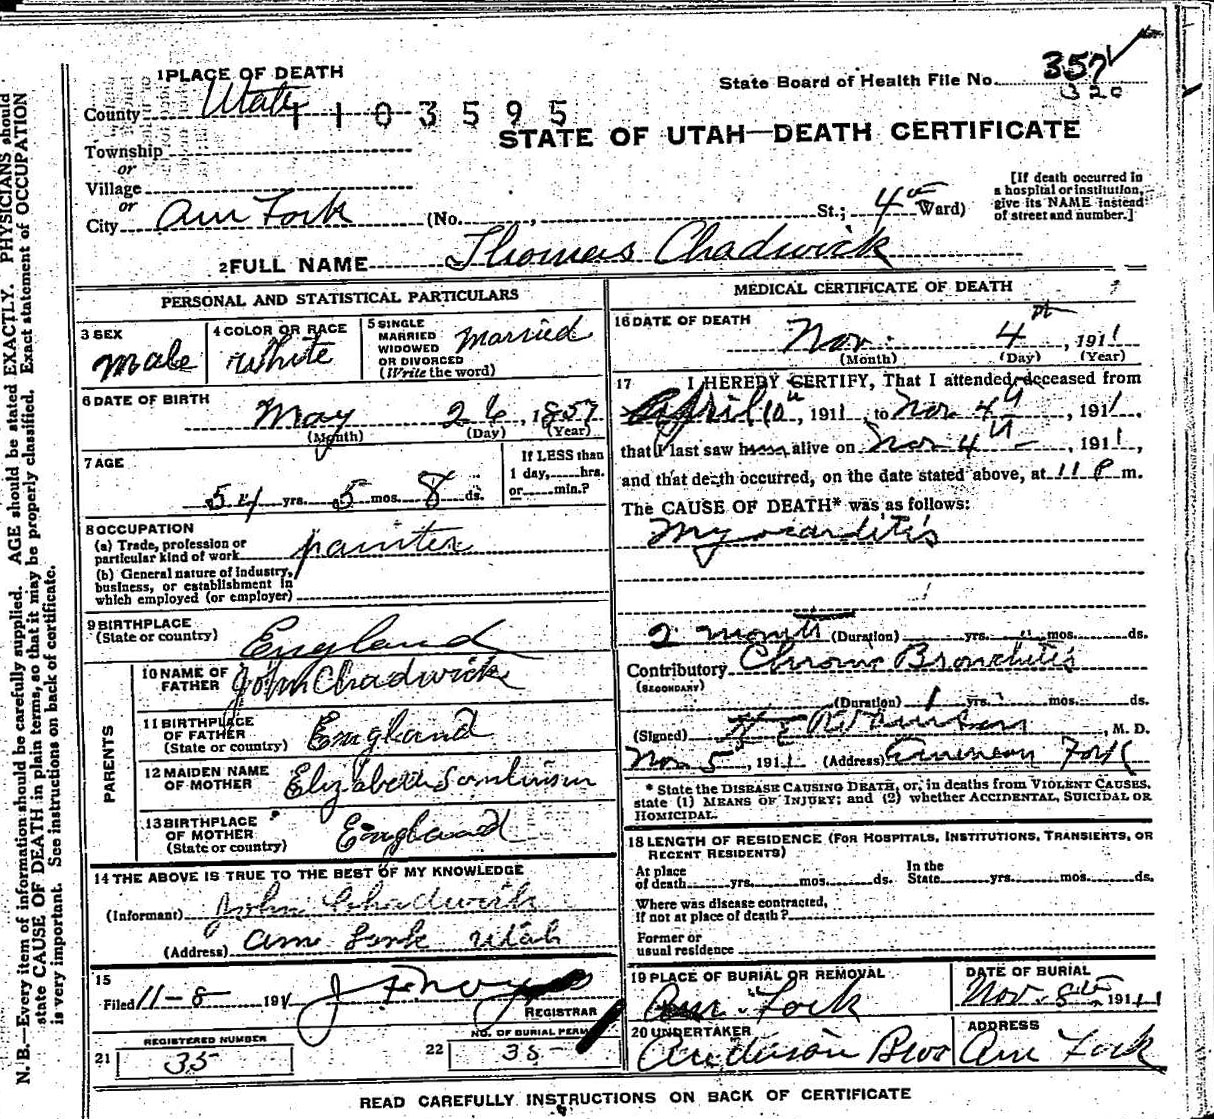 1 PLACE OF DEATH
State Board of Health File No. 357
320
County Utah
1103595
STATE OF UTAH—DEATH CERTIFICATE
Township
or
Village
or
City Am Fork (No. , St.; 4th Ward)
[If death occurred in a hospital or institution, give its NAME instead of street and number.]
2 FULL NAME Thomas Chadwick
PERSONAL AND STATISTICAL PARTICULARS
3 SEX
Male
4 COLOR OR RACE
White
5 SINGLE
MARRIED
WIDOWED
OR DIVORCED
(Write the word)
Married
6 DATE OF BIRTH
May 26, 1857
(Month) (Day) (Year)
7 AGE
54 yrs. 5 mos. 8 ds.
If LESS than
1 day, hrs.
or min.?
8 OCCUPATION
(a) Trade, profession or
particular kind of work painter
(b) General nature of industry,
business, or establishment in
which employed (or employer)
9 BIRTHPLACE
(State or country) England
PARENTS
10 NAME OF
FATHER John Chadwick
11 BIRTHPLACE
OF FATHER
(State or country) England
12 MAIDEN NAME
OF MOTHER Elizabeth Tomlinson
13 BIRTHPLACE
OF MOTHER
(State or country) England
14 THE ABOVE IS TRUE TO THE BEST OF MY KNOWLEDGE
(Informant) John Chadwick
(Address) Am. Fork Utah
15
Filed 11-8 191
REGISTRAR
REGISTERED NUMBER
21 35
NO. OF BURIAL PERMIT
22 35
MEDICAL CERTIFICATE OF DEATH
16 DATE OF DEATH
Nov. 4th, 1911
(Month) (Day) (Year)
17 I HEREBY CERTIFY, That I attended deceased from
April 10th, 1911, to Nov 4th, 1911,
that I last saw alive on Nov 4th, 1911,
and that death occurred, on the date stated above, at 11 P m.
The CAUSE OF DEATH* was as follows:
Myocarditis
2 months (Duration) yrs. mos. ds.
Contributory Chronic Bronchitis
(SECONDARY)
(Duration) 1 yrs. mos. ds.
(Signed) , M. D.
Nov 5, 1911 (Address) American Fork
* State the DISEASE CAUSING DEATH, or, in deaths from VIOLENT CAUSES,
state (1) MEANS OF INJURY; and (2) whether ACCIDENTAL, SUICIDAL OR
HOMICIDAL.
18 LENGTH OF RESIDENCE (FOR HOSPITALS, INSTITUTIONS, TRANSIENTS, OR
RECENT RESIDENTS)
At place
of death yrs. mos. ds.
In the
State yrs. mos. ds.
Where was disease contracted,
if not at place of death?
Former or
usual residence
19 PLACE OF BURIAL OR REMOVAL
Am. Fork
DATE OF BURIAL
Nov. 8th, 1911
20 UNDERTAKER
Anderson Bros
ADDRESS
Am Fork
READ CAREFULLY INSTRUCTIONS ON BACK OF CERTIFICATE
N. B.—Every item of information should be carefully supplied. AGE should be stated EXACTLY. PHYSICIANS should
state CAUSE OF DEATH in plain terms, so that it may be properly classified. Exact statement of OCCUPATION
is very important. See instructions on back of certificate.